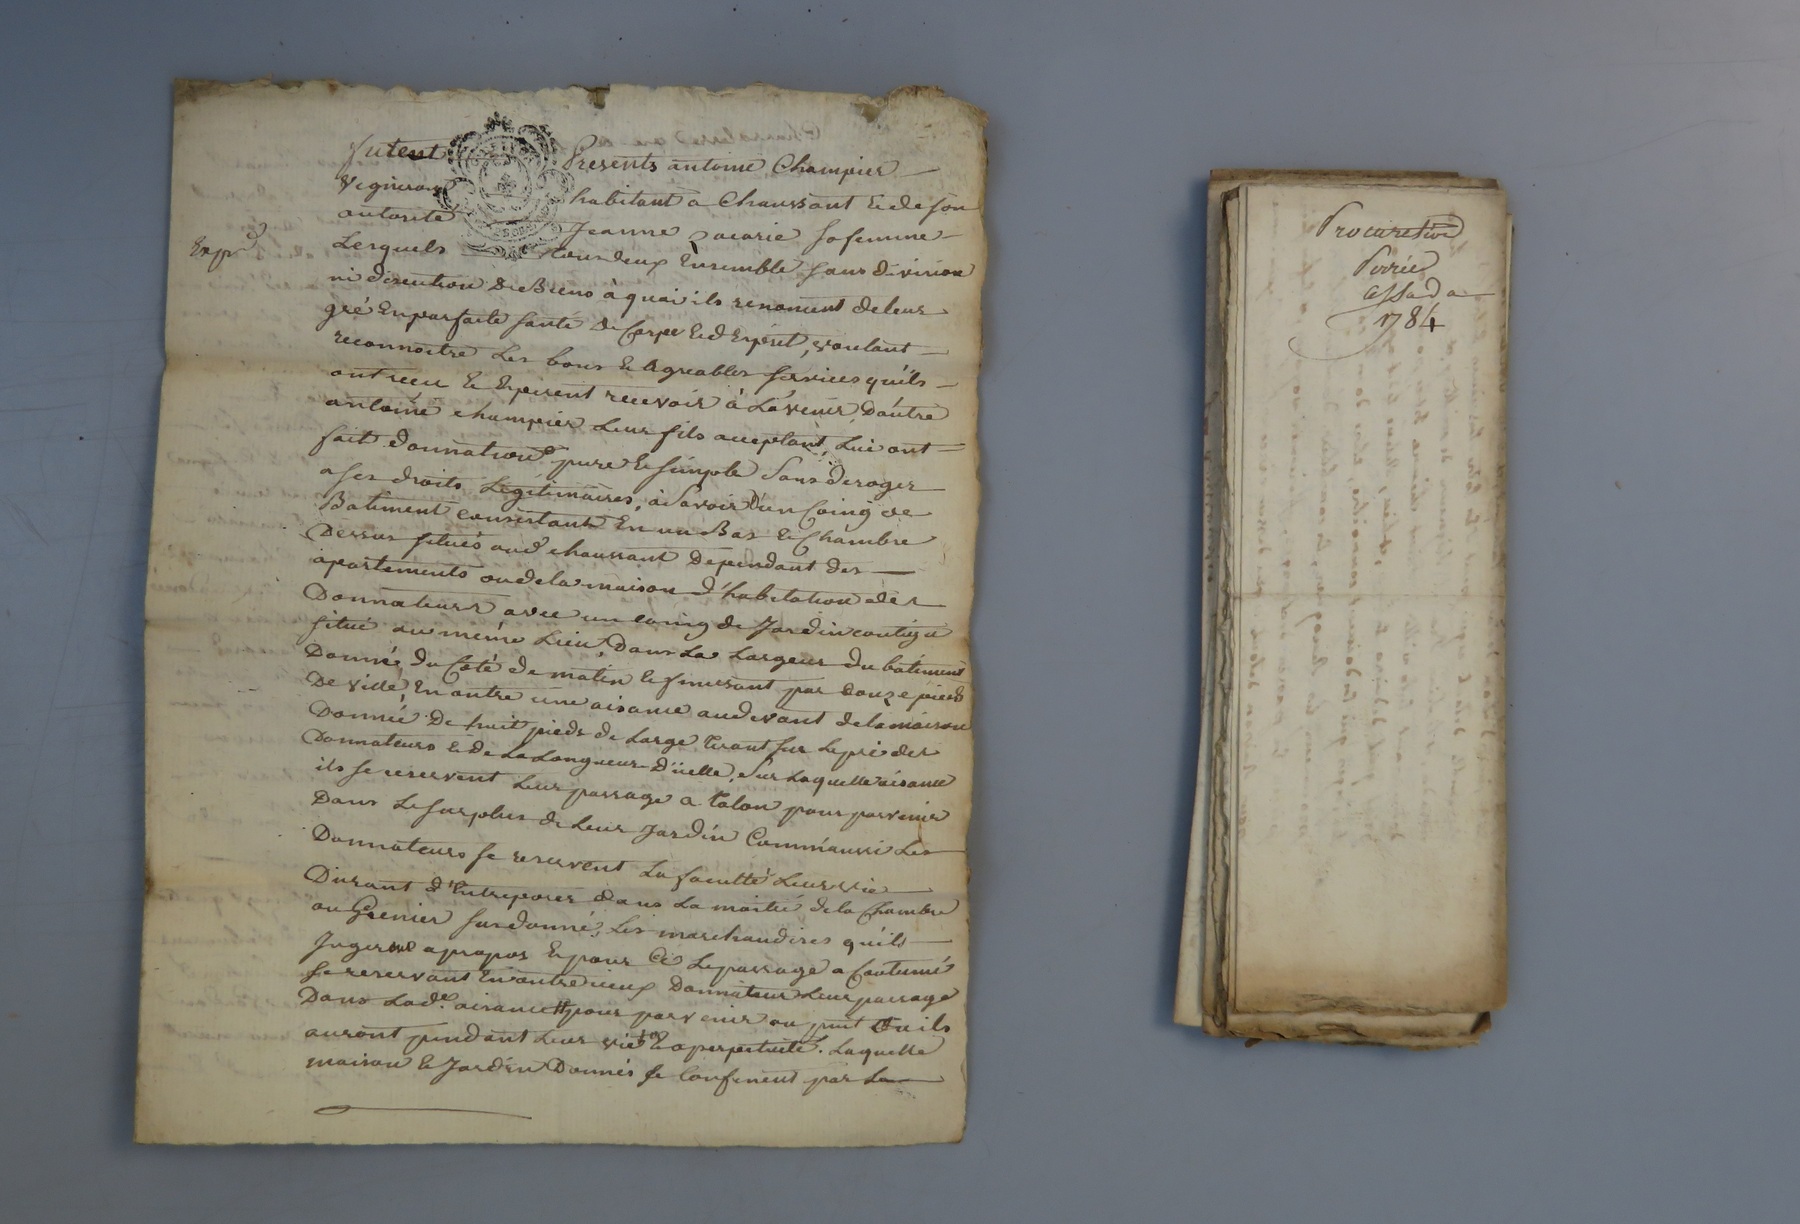 furent Presents antoine Champier
vigneron habitant a Chaussant Et de son
autorité Jeanne Zacarie sa femme
Expé
Lesquels tous deux Ensemble sans division
ni discution De Biens à quoi ils renoncent de leur
gré En parfaite santé de Corps Et d'Esprit, voulant
reconnoitre Les bons Et Agreables services qu'ils
ont reçu Et Esperent recevoir à L'avenir D'autre
antoine champier Leur fils acceptant, Lui ont
fait donnation pure Et simple Sans deroger
a ses droits Légitimaires, à Savoir D'un Coing de
Batiment consistant En un Bas Et Chambre
Dessus situés aud chaussant Dependant des
apartements ou de la maison d'habitation des
Donnateurs avec un coing de Jardin contigu
situé au même Lieu, Dans La Largeur du batiment
Donné, du Coté de matin Et finissant par Douze pieds
De ville, En outre une aisance au devant de la maison
Donnée De huit pieds de Large tirant sur Le pré des
Donnateurs Et de La Longueur D'icelle, Sur Laquelle aisance
ils se reservent Leur passage a talon pour parvenir
Dans Le surplus de Leur Jardin Comm'aussi Les
Donnateurs se reservent La faculté Leur vie
Durant d'Entreposer dans La moitié de la Chambre
ou Grenier sus donné, Les marchandises qu'ils
Jugeront apropos Et pour Ce Le passage a Coutumé
se reservant En outre iceux Donnateurs Leur passage
Dans Lade. aisance pour parvenir au puit qu'ils
auront pendant Leur vie Et a perpetuité. Laquelle
maison Et Jardin Donnés se Confinent par La
Procuration
Poirié
assada
1784